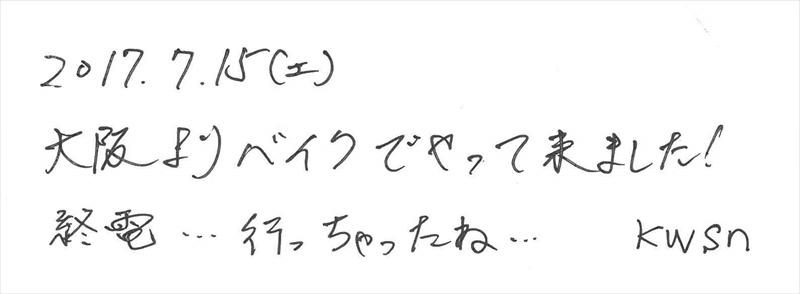 2017.7.15(土)
大阪よりバイクでやって来ました!
終電…行っちゃったね… KWSN